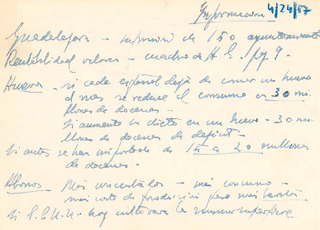 Información 4/24/57
Guadalajara - reunión de 150 ayuntamientos
Rentabilidad valores - cuadro de A. E. / pg 9.
Huevos - si cada español deja de comer un huevo
al mes se reduce el consumo en 30 mi-
llones de docenas -
Si aumenta la dieta en un huevo - 30 mi-
llones de docenas de deficit -
Si antes se han importado de 15 a 20 millones
de docenas.
Abonos - Más concentrados - más consumo -
más costo de producción pero más barato.
Si E.E.U.U. - hoy cultivara la misma superficie